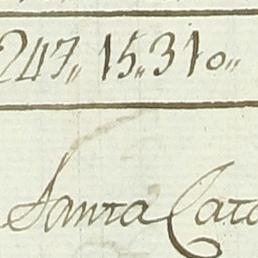 247,, 15,, 310,,
Santa Cata